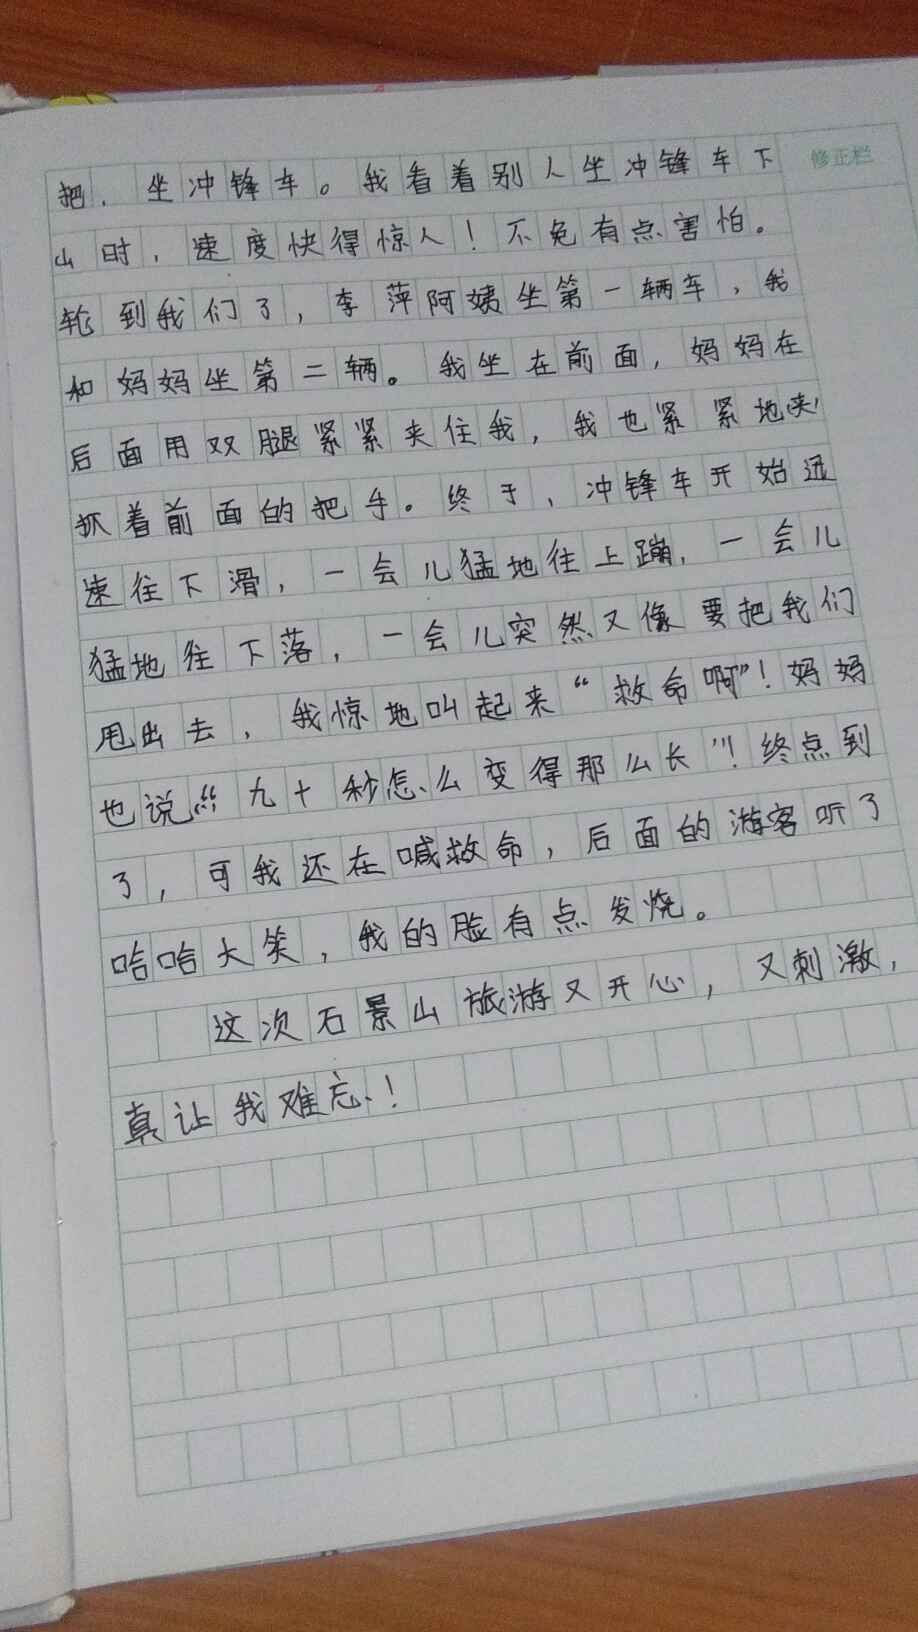 修正栏
把，坐冲锋车。我看着别人坐冲锋车下
山时，速度快得惊人！不免有点害怕。
轮到我们了，李萍阿姨坐第一辆车，我
和妈妈坐第二辆。我坐在前面，妈妈在
后面用双腿紧紧夹住我，我也紧紧地
抓着前面的把手。终于，冲锋车开始迅
速往下滑，一会儿猛地往上蹦，一会儿
猛地往下落，一会儿突然又像要把我们
甩出去，我惊地叫起来“救命啊”！妈妈
也说：“九十秒怎么变得那么长”！终点到
了，可我还在喊救命，后面的游客听了
哈哈大笑，我的脸有点发烧。
这次石景山旅游又开心，又刺激，
真让我难忘！